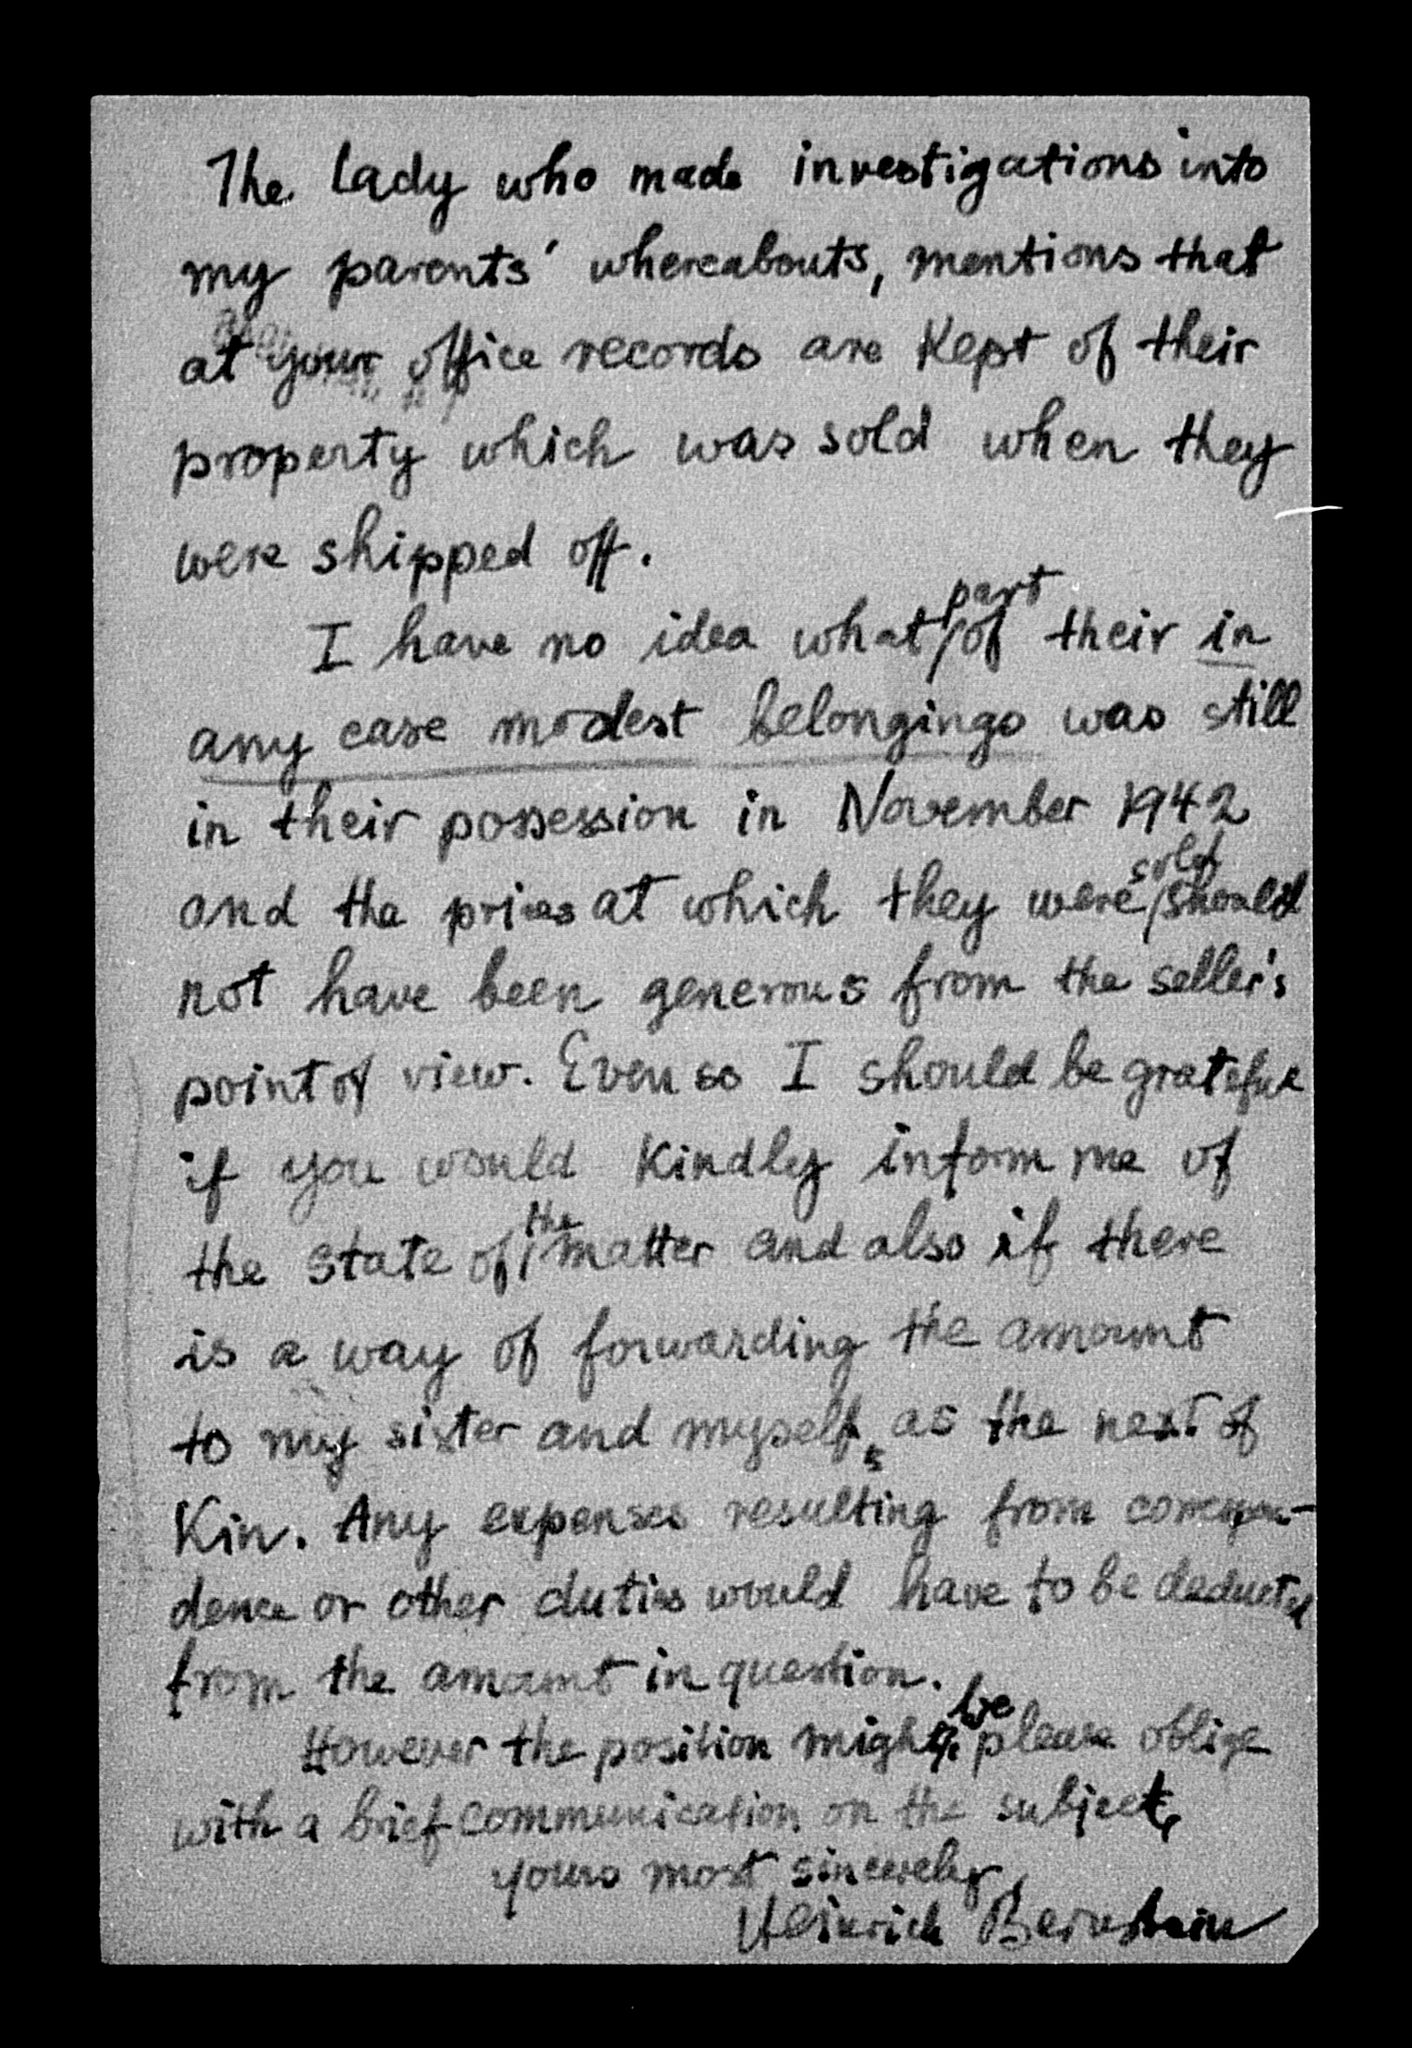 The lady who made investigations into
my parents' whereabouts, mentions that
at your office records are kept of their
property which was sold when they
were shipped off.
I have no idea what part of their in
any case modest belongings was still
in their possession in November 1942
and the prices at which they were sold should
not have been generous from the seller's
point of view. Even so I should be grateful
if you would kindly inform me of
the state of the matter and also if there
is a way of forwarding the amount
to my sister and myself, as the next of
Kin. Any expenses resulting from correspon-
dence or other duties would have to be deducted
from the amount in question.
However the position might be please oblige
with a brief communication on the subject,
yours most sincerely,
Heinrich Bernstein